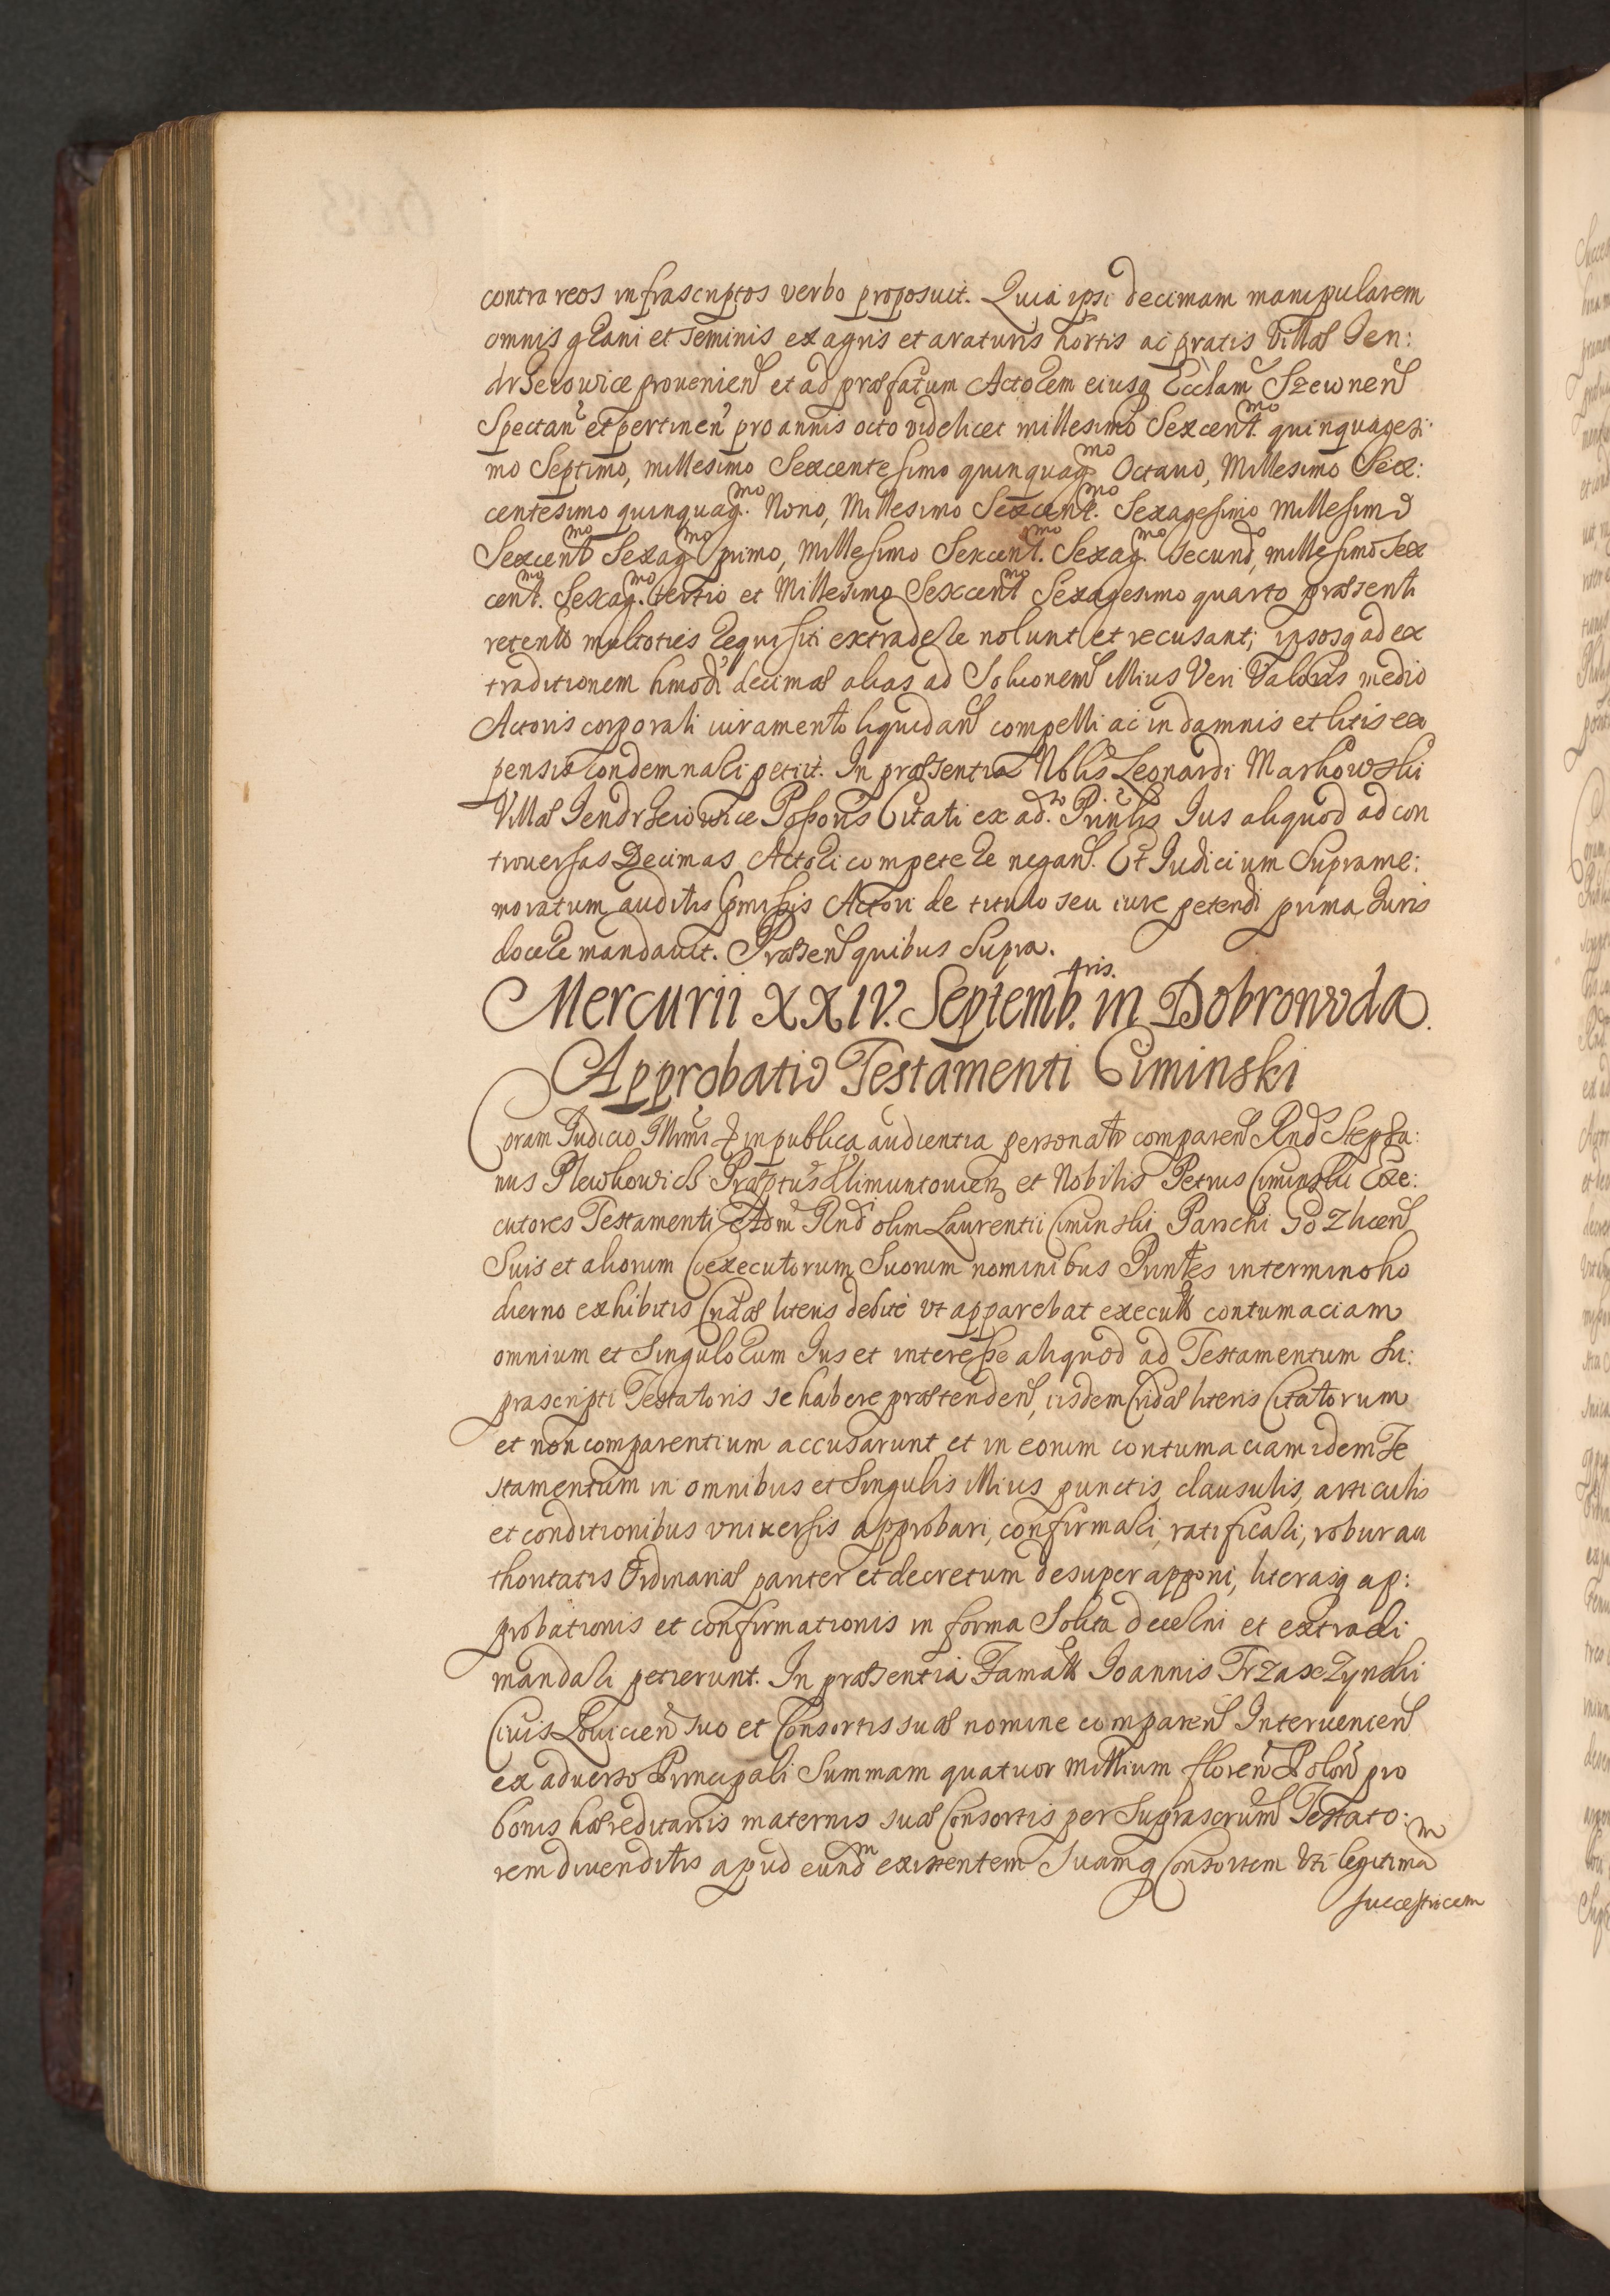 contra reos infrascriptos verbo proposuit. Quia ipsi decimam manipularem
omnis grani et seminis ex agris et araturis hortis ac pratis Villæ Jen:
drzeiowice provenien et ad præfatum Actorem eiusq Ecclam Szewnen
Spectan et pertinen pro annis octo videlicet millesimo Sexcent.mo quinquagesi
mo Septimo, millesimo Sexcentesimo quinquag.mo Octavo, Millesimo Sex:
centesimo quinquag.mo Nono, Millesimo Sexcent.mo Sexagesimo Millesimo
Sexcent.mo Sexag.mo primo, Millesimo Sexcent.mo Sexag.mo Secundo, millesimo Sex
cent.mo Sexag.mo tertio et Millesimo Sexcent.mo Sexagesimo quarto præsenti
retento multoties requisiti extradere nolunt et recusant; ipsosq ad ex
traditionem hmodi decimæ alias ad Solucionem illius Veri Valoris medio
Actoris corporali iuramento liquidan compelli ac in damnis et litis ex
pensis condemnari petiit. In præsentia Nblis Leonardi Markowski
Villæ Jendrzeiowice Possoris Citati ex ad.so Prinlis Jus aliquod ad con
troversas Decimas Actori competere negan. Et Judicium Suprame:
moratum auditis præmissis Actori de titulo seu iure petendi prima Juris
docere mandavit. Præsen quibus Supra.
Mercurii XXIV. Septemb.tris in Dobrowoda.
Approbatio Testamenti Ciminski
Coram Judicio Illmi & in publica audientia personatr comparen Rnd Stepha:
nus Plewkowicz Præptus Klimuntovien et Nobilis Petrus Ciminski Exe:
cutores Testamenti Adm Rnd olim Laurentii Ciminski Parochi Gozlicen
Suis et aliorum Coexecutorum Suorum nominibus Prinles in termino ho
dierno exhibitis Cridæ literis debite vt apparebat executis contumaciam
omnium et Singulorum Jus et interesse aliquod ad Testamentum Su:
prascripti Testatoris se habere prætenden, iisdem Cridæ literis Citatorum
et non comparentium accusarunt et in eorum contumaciam idem Te
stamentum in omnibus et Singulis illius punctis, clausulis, articulis
et conditionibus vniversis approbari, confirmari, ratificari, robur au
thoritatis Ordinariæ pariter et decretum desuper apponi, literasq ap:
probationis et confirmationis in forma Solita decerni et extradi
mandari petierunt. In præsentia Famati Joannis Trzaszynski
Civis Lovicien suo et Consortis suæ nomine comparen Intervenien
ex adverso Principali Summam quatuor Millium floren Polon pro
bonis hæreditariis maternis suæ Consortis per Suprascrum Testato:
rem divenditis apud eund.m existentem Suamq Consortem vti legitima.m
successricem